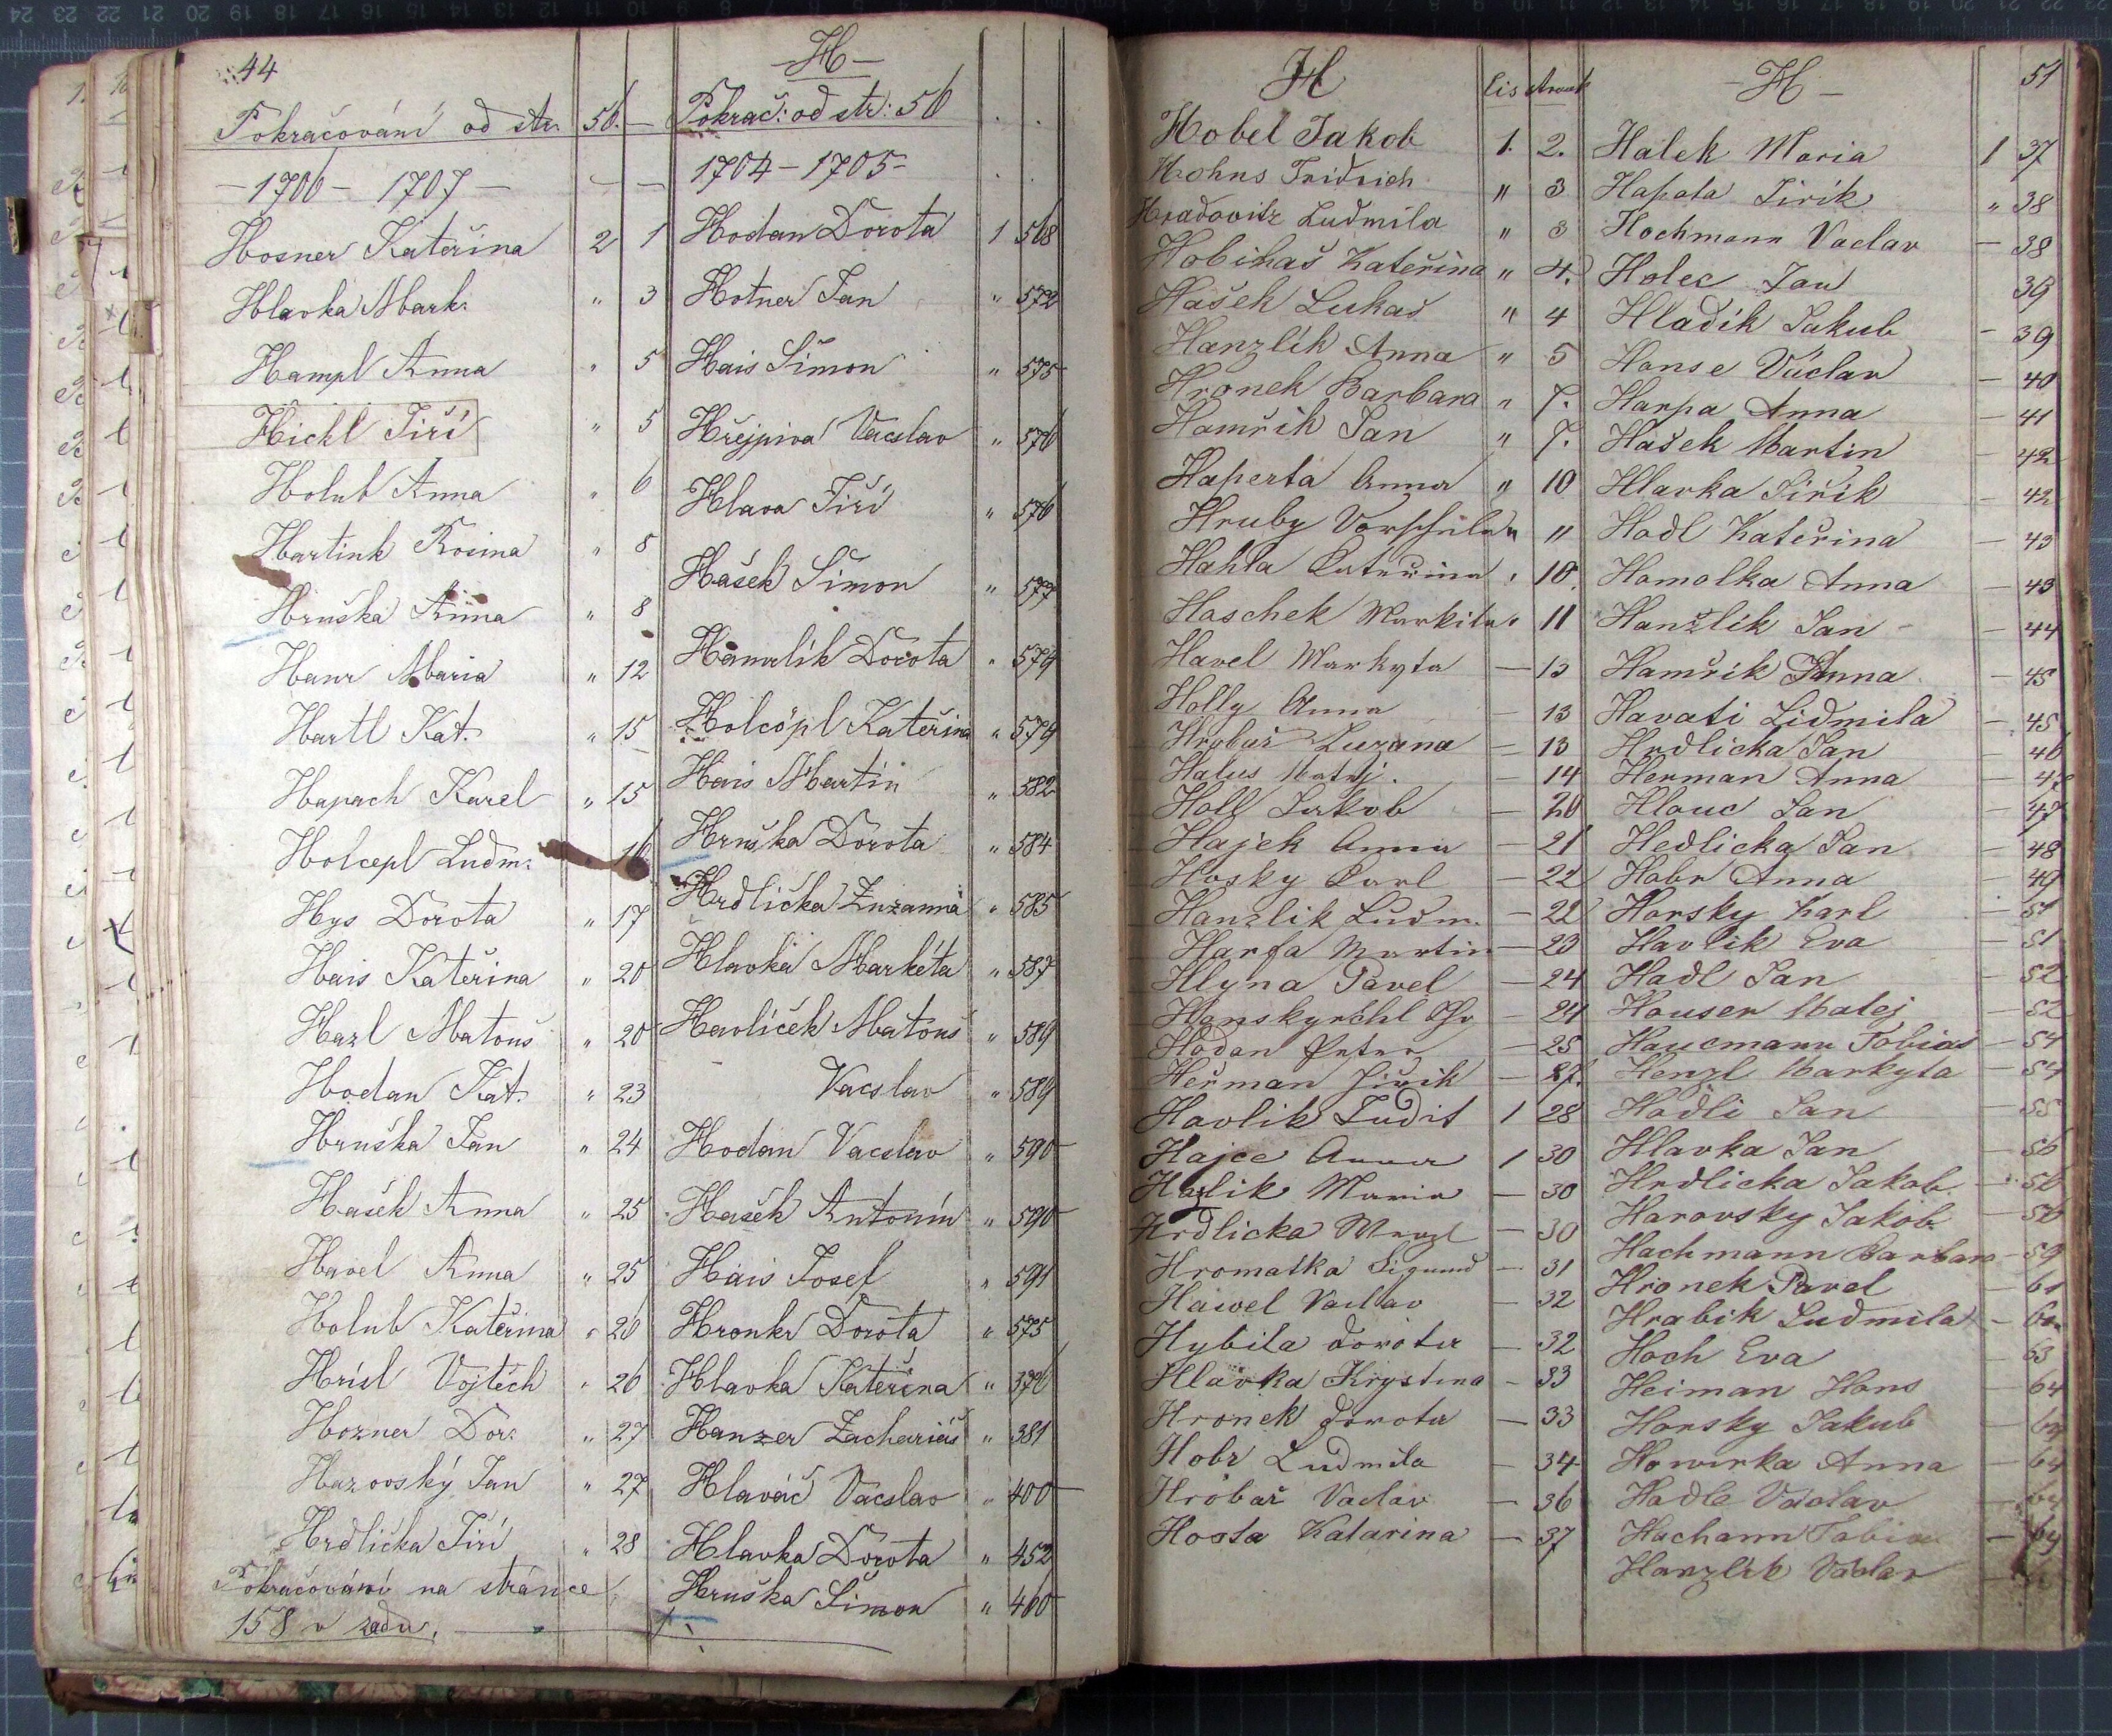 44
Pokračování od str. 56. —
— 1706 — 1707 —
Hosner Kateřina 2 1
Hlavka Mark. " 3
Hampl Anna " 5
Hichl Jiří " 5
Holub Anna " 6
Hartink Rosina " 8
Hruška Anna " 8
Hanr Maria " 12
Hartl Kat. " 15
Hapach Karel " 15
Holcepl Ludm. 16
Hys Dorota " 17
Hais Kateřina " 20
Hazl Matouš " 20
Hodan Kat. " 23
Hruška Jan " 24
Hašek Anna " 25
Havel Anna " 25
Holub Kateřina " 26
Hrísl Vojtěch " 26
Hozner Dor. " 27
Hazovský Jan " 27
Hrdlička Jiří " 28
Pokračování na stránce
158 v zadu.
— H —
Pokrač: od str: 56
1704 — 1705
Hodan Dorota 1 568
Hotner Jan " 572
Hais Šimon " 575
Hřejpiva Vacslav " 576
Hlava Jiří " 576
Hašek Šimon " 577
Dorota " 579
Holcöpl Kateřina " 579
Hais Martin " 582
Hruška Dorota " 584
Hrdlička Zuzanna " 585
Hlavka Markéta " 587
Havlíček Matouš " 589
Vacslav " 589
Hodan Vacslav " 590
Hašek Antonín " 590
Hais Josef " 591
Hronkr Dorota " 575
Hlavka Kateřina " 376
Hanzer Zachariáš " 381
Hlaváč Vacslav " 400
Hlavka Dorota " 452
Hruška Šimon " 460
H lis strank
Hobel Jakob 1. 2.
Hrohns Fridrich " 3
Hradovitz Ludmila " 3
Hobihaš Kateřina " 4.
Hašek Lukaš " 4
Hanzlik Anna " 5
Hronek Barbara " 7.
Hamřik Jan " 7.
Haperta Anna " 10
Hruby "
Hahla Kateřina 10
Haschek Markita 11
Havel Markyta — 13
Holly Anna — 13
Hrobař Zuzana — 13
Halus Matej. — 14
Holl Jakob — 20
Hajek Anna — 21
Hosky Karl — 22
Hanzlik Ludm. — 22
Harfa Martin — 23
Hlyna Pavel — 24
— 24
Hodan Peter — 25
Heřman Jiřik — 27.
Havlik Judit 1 28
Hajce Anna 1 30
Hazlik Maria — 30
Hrdlicka Wenzl — 30
Hromatka Sigmund — 31
Hawel Vaclav — 32
Hybila Dorota — 32
Hlavka Krystina — 33
Hronek Dorota — 33
Hobr Ludmila — 34
Hrobař Vaclav — 36
Hosta Katarina — 37
— H — 51
Halek Maria 1 37
Hapata Jirik " 38
Hochmann Vaclav — 38
Holec Jan 39
Hladik Jakub — 39
Hanse Václav — 40
Harpa Anna — 41
Hašek Martin — 42
Hlavka Jiřik — 42
Hadl Kateřina — 43
Homolka Anna — 43
Hanžlik Jan — 44
Hamřik Anna — 45
Havati Lidmila — 45
Hrdlicka Jan — 46
Herman Anna — 47
Hlouc Jan — 47
Hedlicka Jan — 48
Habr Anna — 49
Horsky Karl — 51
Havlik Eva — 51
Hadl Jan — 52
Hauser Matej — 52
Haucmann Tobias — 54
Henzl Markyta — 54
Hadli Jan — 55
Hlavka Jan — 56
Hrdlicka Jakob — 56
Harovsky Jakob — 56
Hachmann Barbara — 59
Hronek Pavel — 61
Hrabik Ludmila —
Hoch Eva — 63
Heiman Hans — 64
Horsky Jakub —
Howirka Anna — 64
Hadle Václav —
Hachann Tobias — 64
Hanzlik Václav —